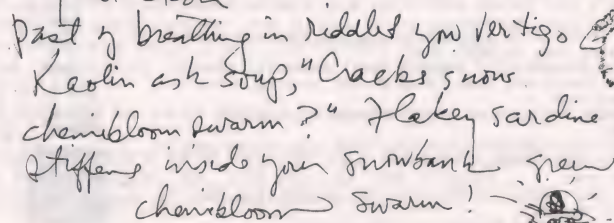 past of breathing in riddled you vertigo
Kaolin ask soup, "Cracks snows
chemibloom swarm?" Flakey sardine
stiffens inside your snowbank green
chemibloom swarm!